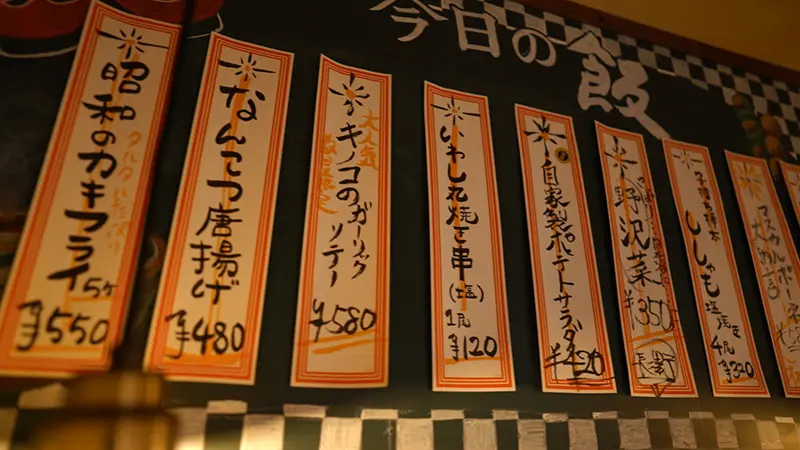 今日の飯
昭和のカキフライ
5ケ
¥550
なんこつ唐揚げ
¥480
大人気
キノコのガーリック
ソテー
¥580
いわし丸焼き串
(塩)
1尾
¥120
自家製ポテトサラダ
¥420
野沢菜
¥350
長野
子持ち樺太
ししゃも
塩焼き
4尾
¥320
マスカルポーネ